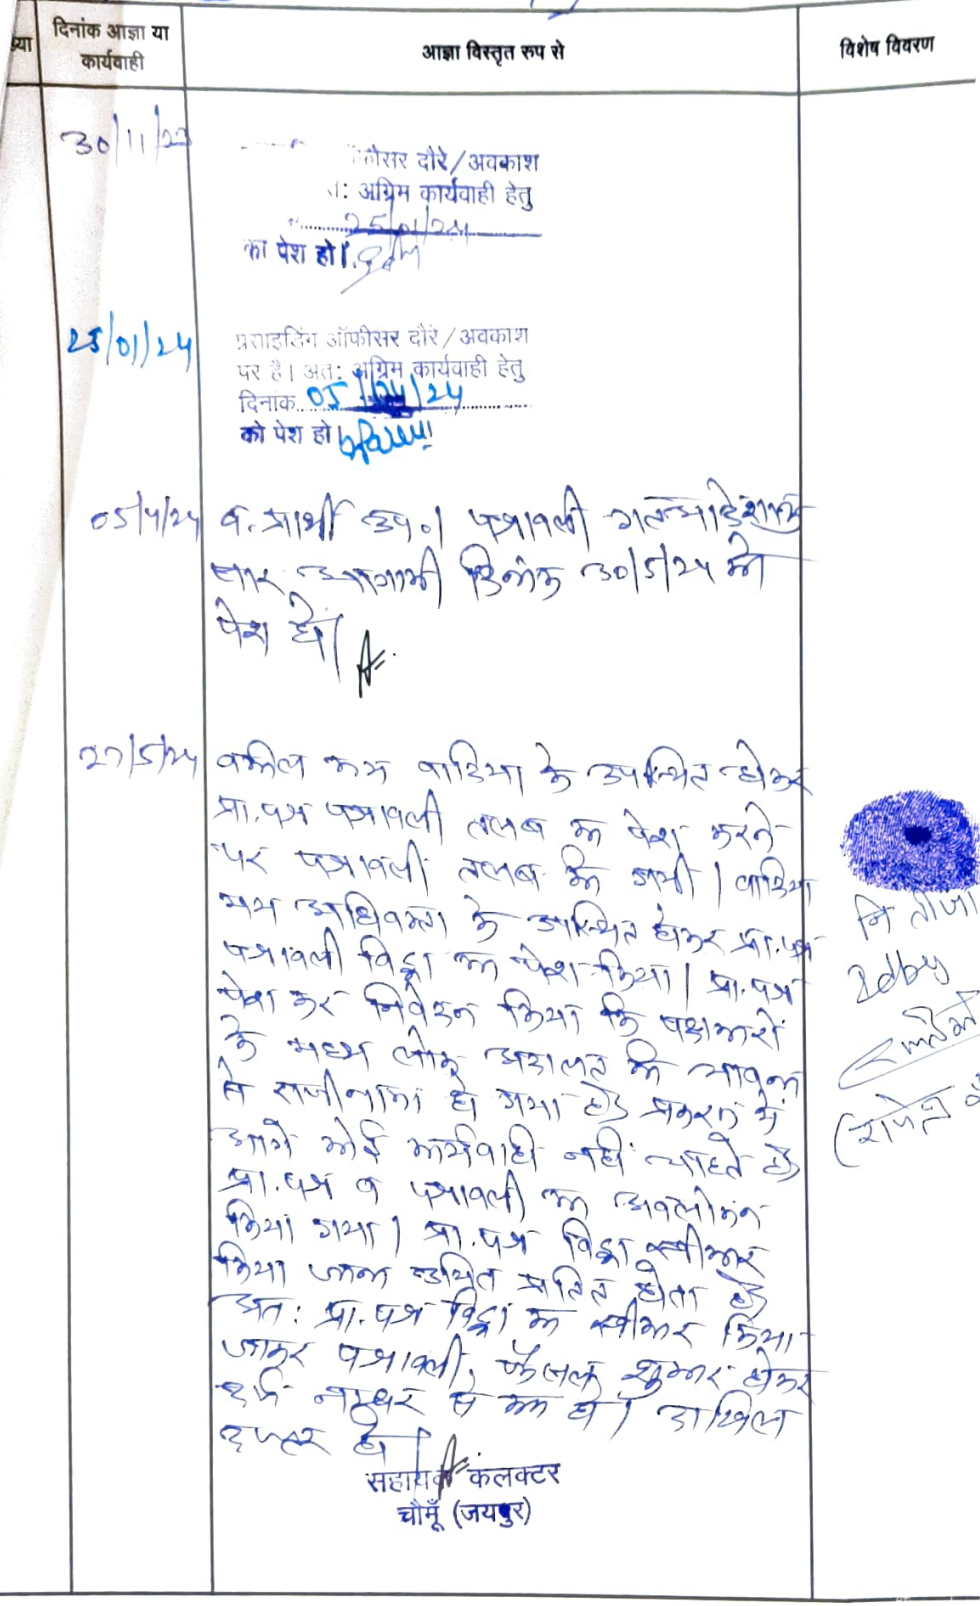 दिनांक आज्ञा या
कार्यवाही
आज्ञा विस्तृत रुप से
विशेष विवरण
30/11/23
दौरे/अवकाश
अग्रिम कार्यवाही हेतु
25/01/24
का पेश हो।
25/01/24
प्रसाइडिंग ऑफीसर दौरे/अवकाश
पर है। अत: अग्रिम कार्यवाही हेतु
दिनांक 05 /24
को पेश हो
05/4/24
व. प्रार्थी उप०। पत्रावली गतआदेशानु
सार आगामी दिनांक 30/5/24 को
पेश हो।
27/5/24
वकील मय वादिया के उपस्थित होकर
प्रा.पत्र पत्रावली तलब का पेश करने
पर पत्रावली तलब की गयी। वादिया
मय अधिवक्ता के उपस्थित होकर प्रा.पत्र
पत्रावली विड्रा का पेश किया। प्रा.पत्र
पेश कर निवेदन किया कि पक्षकारों
के मध्य लोक अदालत की भावना
से राजीनामा हो गया है प्रकरण में
आगे कोई कार्यवाही नहीं चाहते है
प्रा.पत्र व पत्रावली का अवलोकन
किया गया। प्रा.पत्र विड्रा स्वीकार
किया जाना उचित प्रतित होता है
अत: प्रा.पत्र विड्रा का स्वीकार किया
जाकर पत्रावली, फैसल शुमार होकर
नम्बर से कम हो। दाखिल
दफ्तर हो।
सहायक कलक्टर
चौमूँ (जयपुर)